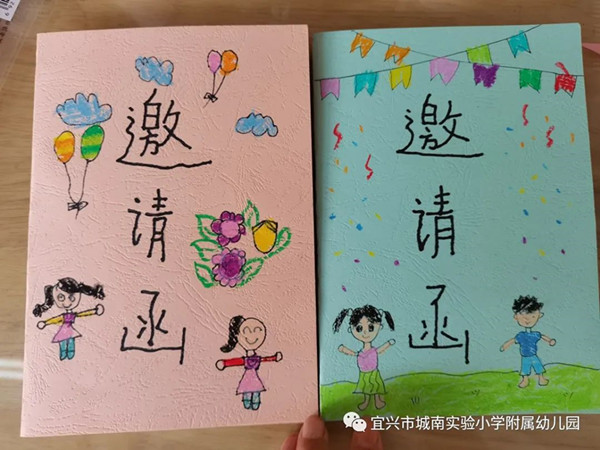 邀
请
函
邀
请
函
宜兴市城南实验小学附属幼儿园